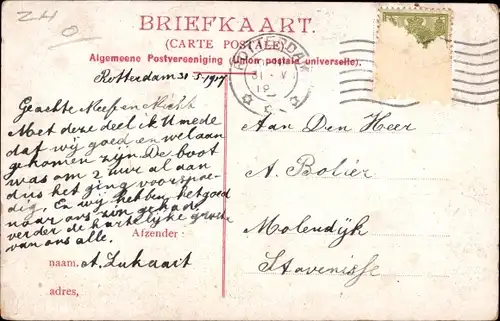 ZH
O
BRIEFKAART.
(CARTE POSTALE)
Algemeene Postvereeniging (Union postale universelle).
ROTTERDAM
31 V
19
Rotterdam 31-5-1907
Geachte Neef en Nicht
Met deze deel ik U mede
dat wij goed en wel aan
gekomen zijn. De boot
was om 2 uur al aan
dus het ging voorspoe
dig. En wij hebben het goed
naar ons zin gehad
verder de hartelijke groete
van ons alle.
Afzender:
naam. A.
adres,
Aan Den Heer
A. Bolier
Molendijk
Stavenisse